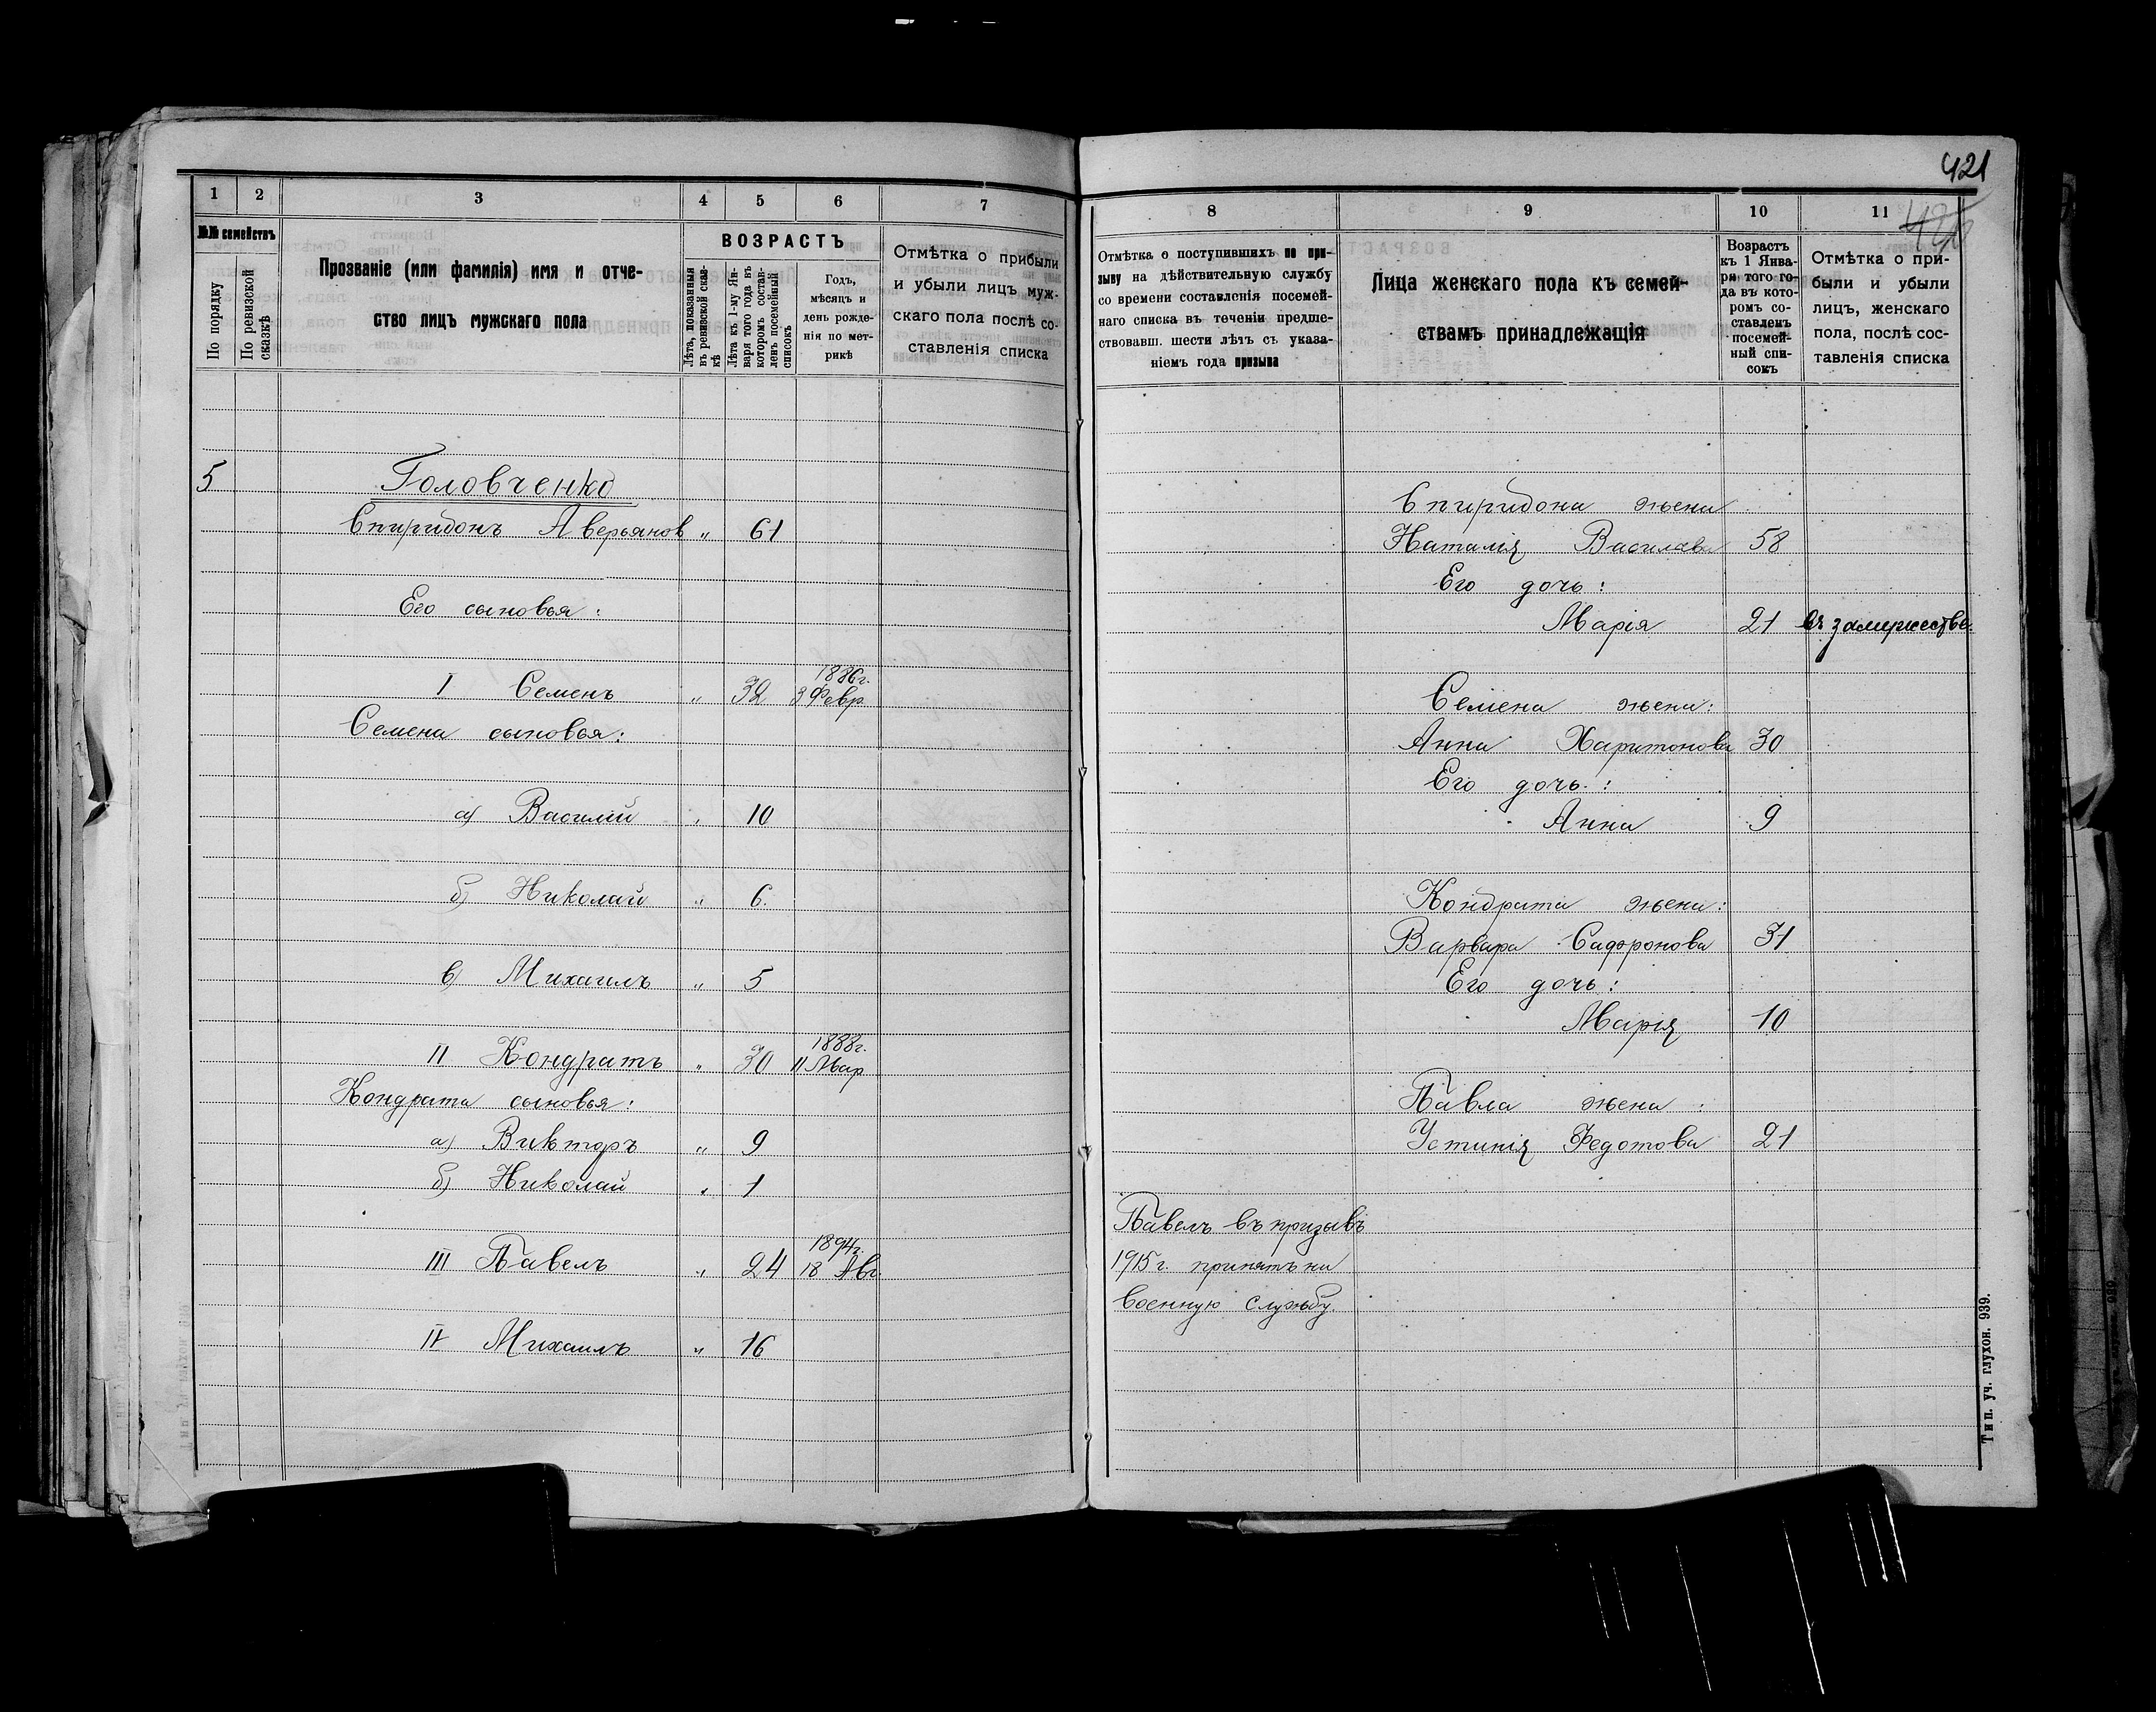 421
1 2 3 4 5 6 7
№№ семействъ
По порядку
По ревизской сказкѣ
Прозваніе (или фамилія) имя и отче-
ство лицъ мужскаго пола
ВОЗРАСТЪ
Лѣта, показанныя
въ ревизской сказ-
кѣ
Лѣта къ 1-му Ян-
варя того года въ
которомъ состав-
ленъ посемейный
списокъ
Годъ,
мѣсяцъ и
день рожде-
нія по мет-
рикѣ
Отмѣтка о прибыли
и убыли лицъ муж-
скаго пола послѣ со-
ставленія списка
5 Головченко
Спиридонъ Аверьянов " 61
Его сыновья:
I Семенъ " 32 1886г. 3 Февр.
Семена сыновья:
а) Василий " 10
б) Николай " 6.
в) Михаилъ " 5
II Кондратъ " 30 1888г. 11 Мар
Кондрата сыновья:
а) Викторъ " 9
б) Николай " 1
III Павелъ " 24 1894г. 18 Авг.
IV Михаилъ " 16
8 9 10 11
Отмѣтка о поступившихъ по при-
зыву на дѣйствительную службу
со времени составленія посемей-
наго списка въ теченіи предше-
ствовавш. шести лѣтъ съ указа-
ніемъ года призыва
Лица женскаго пола къ семей-
ствамъ принадлежащія
Возрастъ
къ 1 Янва-
ря того го-
да въ кото-
ромъ со-
ставленъ
посемей-
ный спи-
сокъ
Отмѣтка о при-
были и убыли
лицъ, женскаго
пола, послѣ сос-
тавленія списка
Спиридона жена
Наталія Василева 58
Его дочь:
Марія 21 въ замужествѣ.
Семена жена:
Анна Харитонова 30
Его дочь:
Анна 9
Кондрата жена:
Варвара Сафронова 31
Его дочь:
Марія 10
Павла жена:
Устинія Федотова 21
Павелъ въ призывъ
1915г. принятъ на
военную службу.
Тип. уч. глухон. 939.